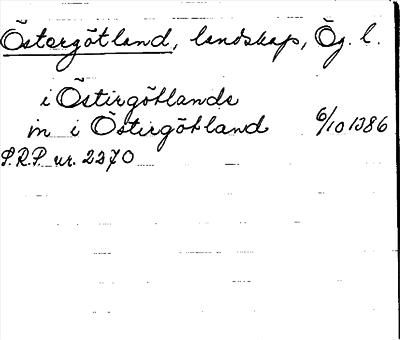 Östergötland, landskap, Ög. l.
i Östirgötlande
in i Östirgötland 6/10 1386
S.R.P. nr. 2370